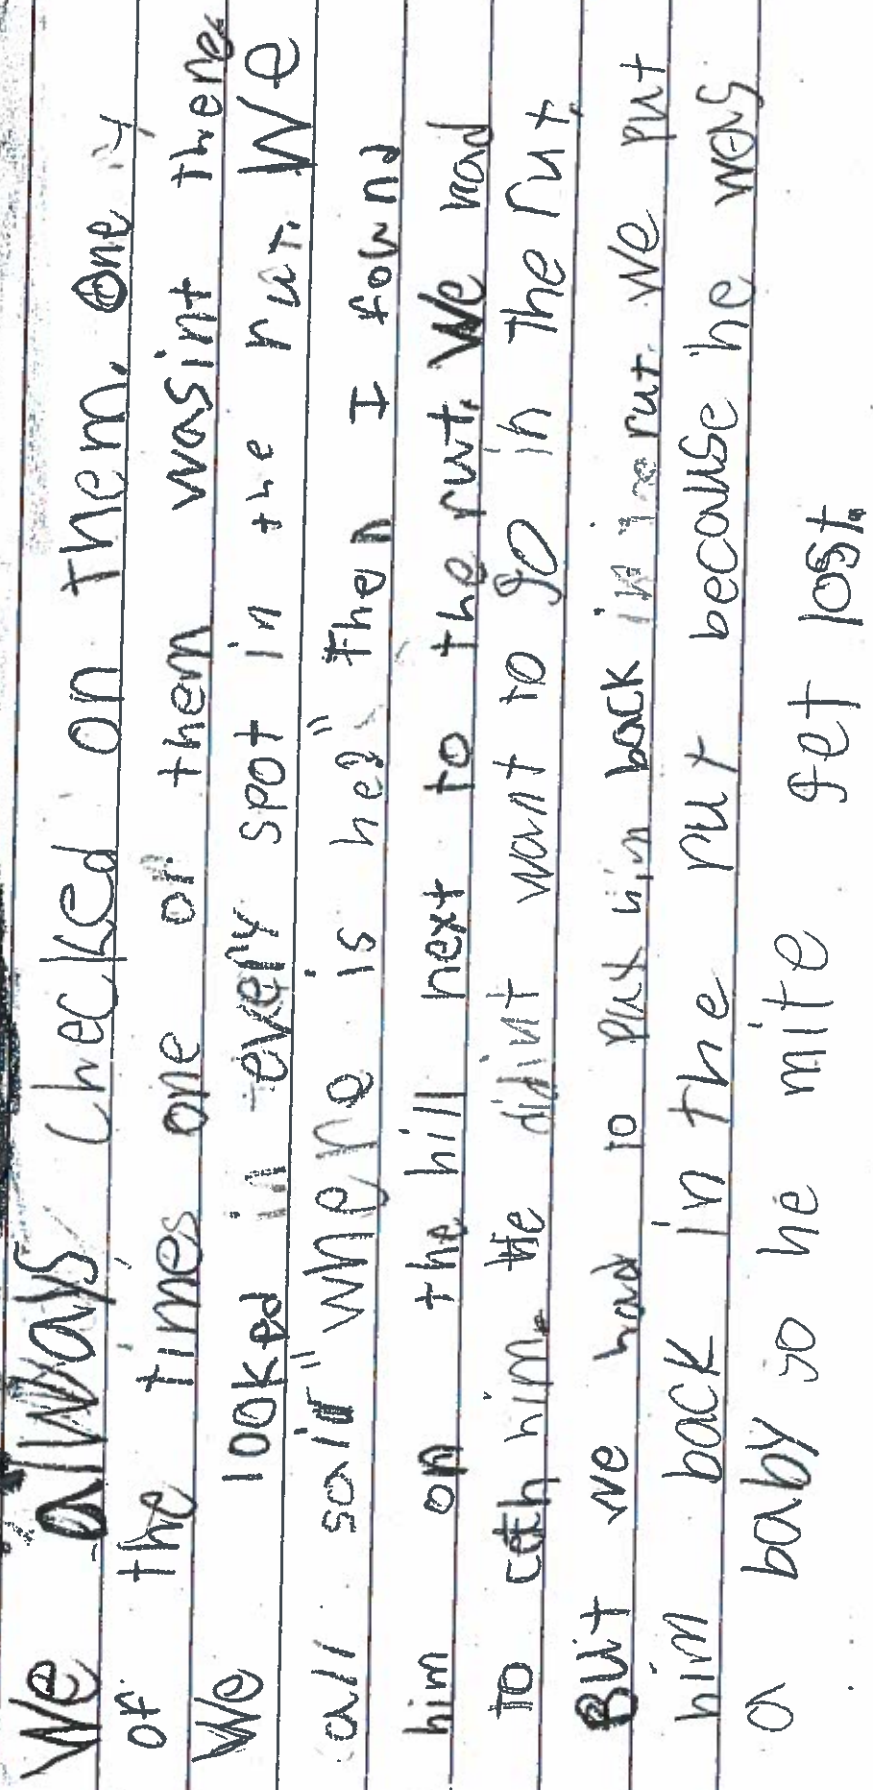 We always checked on them. One
of the times one of them wasint there
We looked in every spot in the rut. We
all said "where is he?" Then I fownd
him on the hill next to the rut. We had
To ceth him. He didint want to go in the rut.
BUt we had to put him back in the rut. We put
him back in the rut because he was
a baby so he mite get lost.